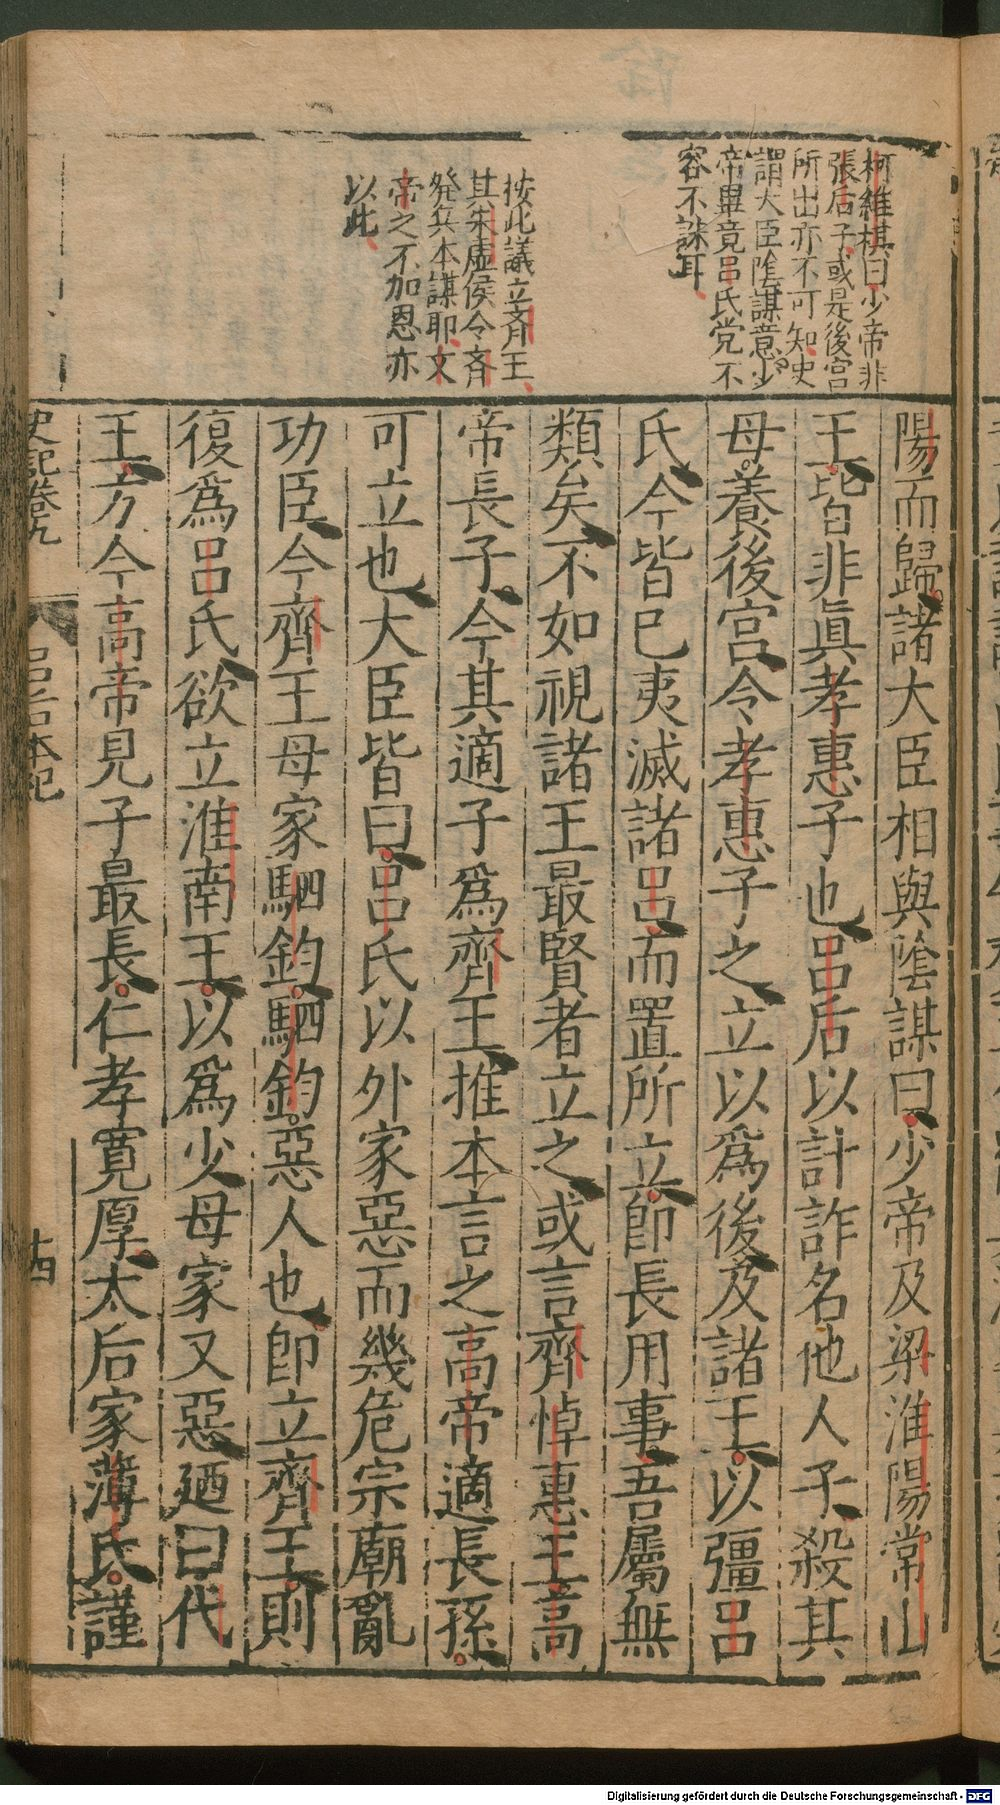 柯維棋曰少帝非
張后子或是後宮
所出亦不可知史
謂大臣陰謀意少
帝畢竟呂氏党不
容不誅耳
按此議立斉王
其朱虛侯令斉
発兵本謀耶文
帝之不加恩亦
以此
陽而歸諸大臣相與陰謀曰少帝及梁淮陽常山
王皆非眞孝惠子也呂后以計詐名他人子殺其
母養後宮令孝惠子之立以爲後及諸王以彊呂
氏今皆已夷滅諸呂而置所立卽長用事吾屬無
類矣不如視諸王最賢者立之或言齊悼惠王高
帝長子今其適子爲齊王推本言之高帝適長孫
可立也大臣皆曰呂氏以外家惡而幾危宗廟亂
功臣今齊王母家駟鈞駟鈞惡人也卽立齊王則
復爲呂氏欲立淮南王以爲少母家又惡廼曰代
王方今高帝見子最長仁孝寛厚太后家薄氏謹
史記卷九 呂后本紀 十四
Digitalisierung gefördert durch die Deutsche Forschungsgemeinschaft - DFG